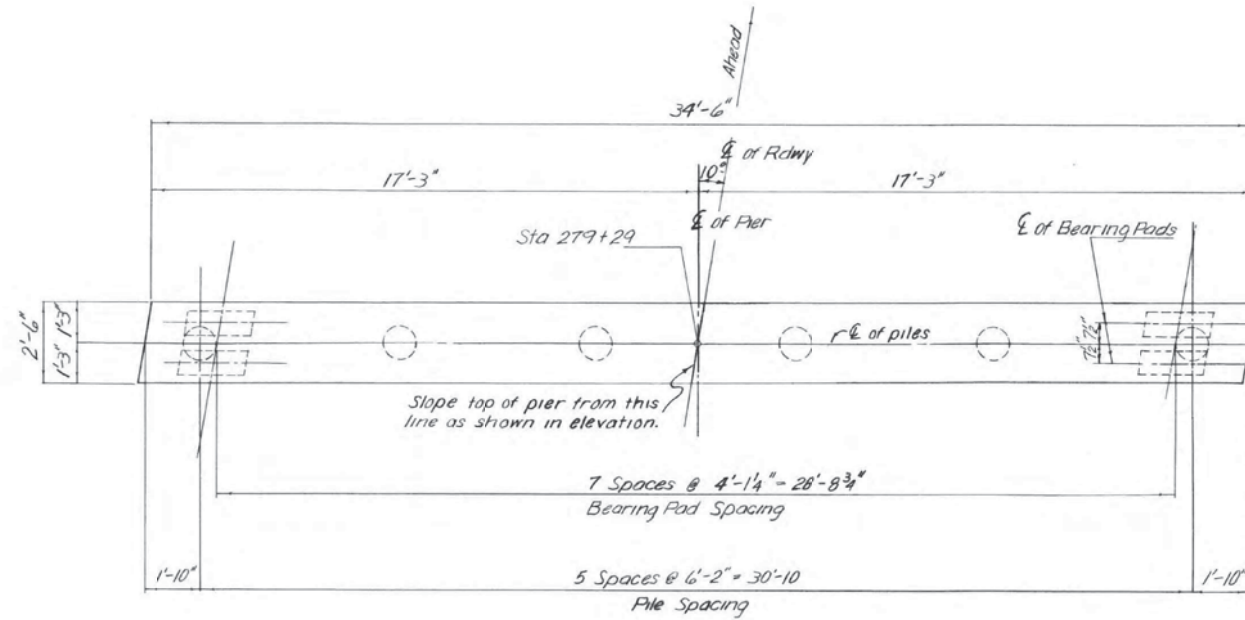 Ahead
34'-6"
℄ of Rdwy
10°
17'-3"
17'-3"
℄ of Pier
Sta 279+29
℄ of Bearing Pads
2'-6"
1'-3" 1'-3"
7½" 7½"
℄ of piles
Slope top of pier from this
line as shown in elevation.
7 Spaces @ 4'-1¼" = 28'-8¾"
Bearing Pad Spacing
1'-10"
5 Spaces @ 6'-2" = 30'-10
1'-10"
Pile Spacing